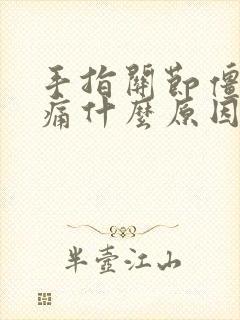 手指關節僵
痛什麼原因
半壺江山